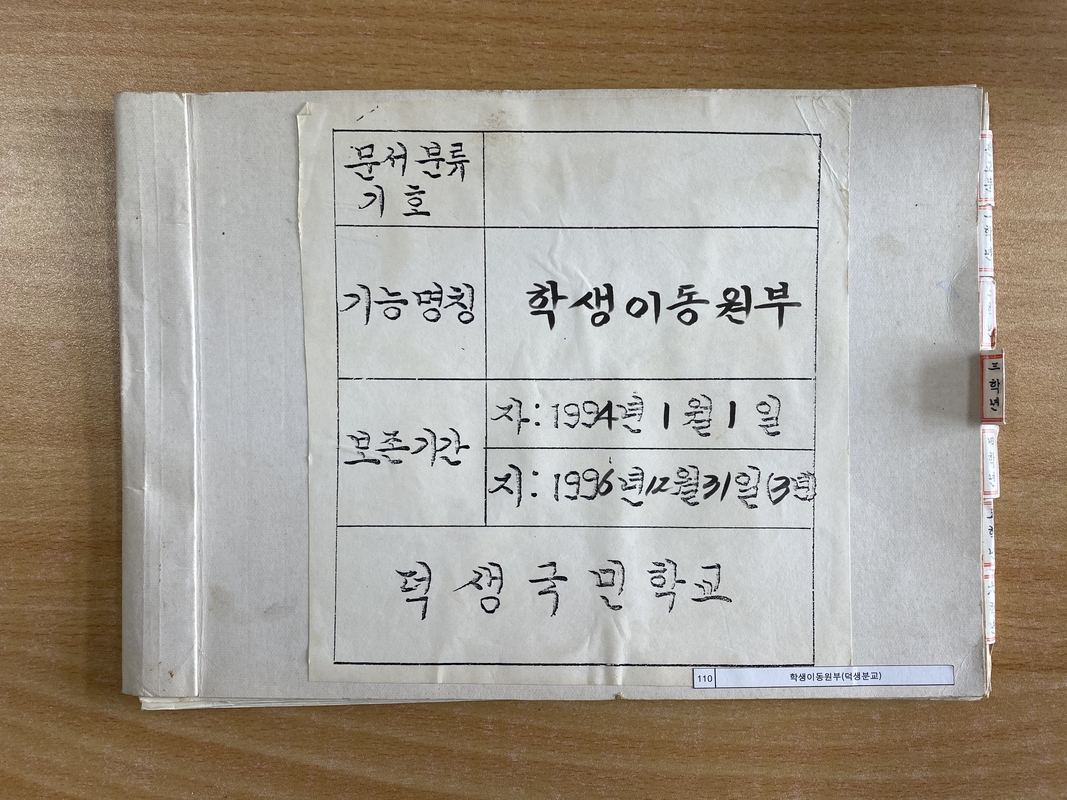 문서분류
기호
기능명칭
학생이동원부
보존기간
자: 1994년 1월 1일
지: 1996년 12월 31일 (3년)
덕생국민학교
110
학생이동원부(덕생분교)
三학년